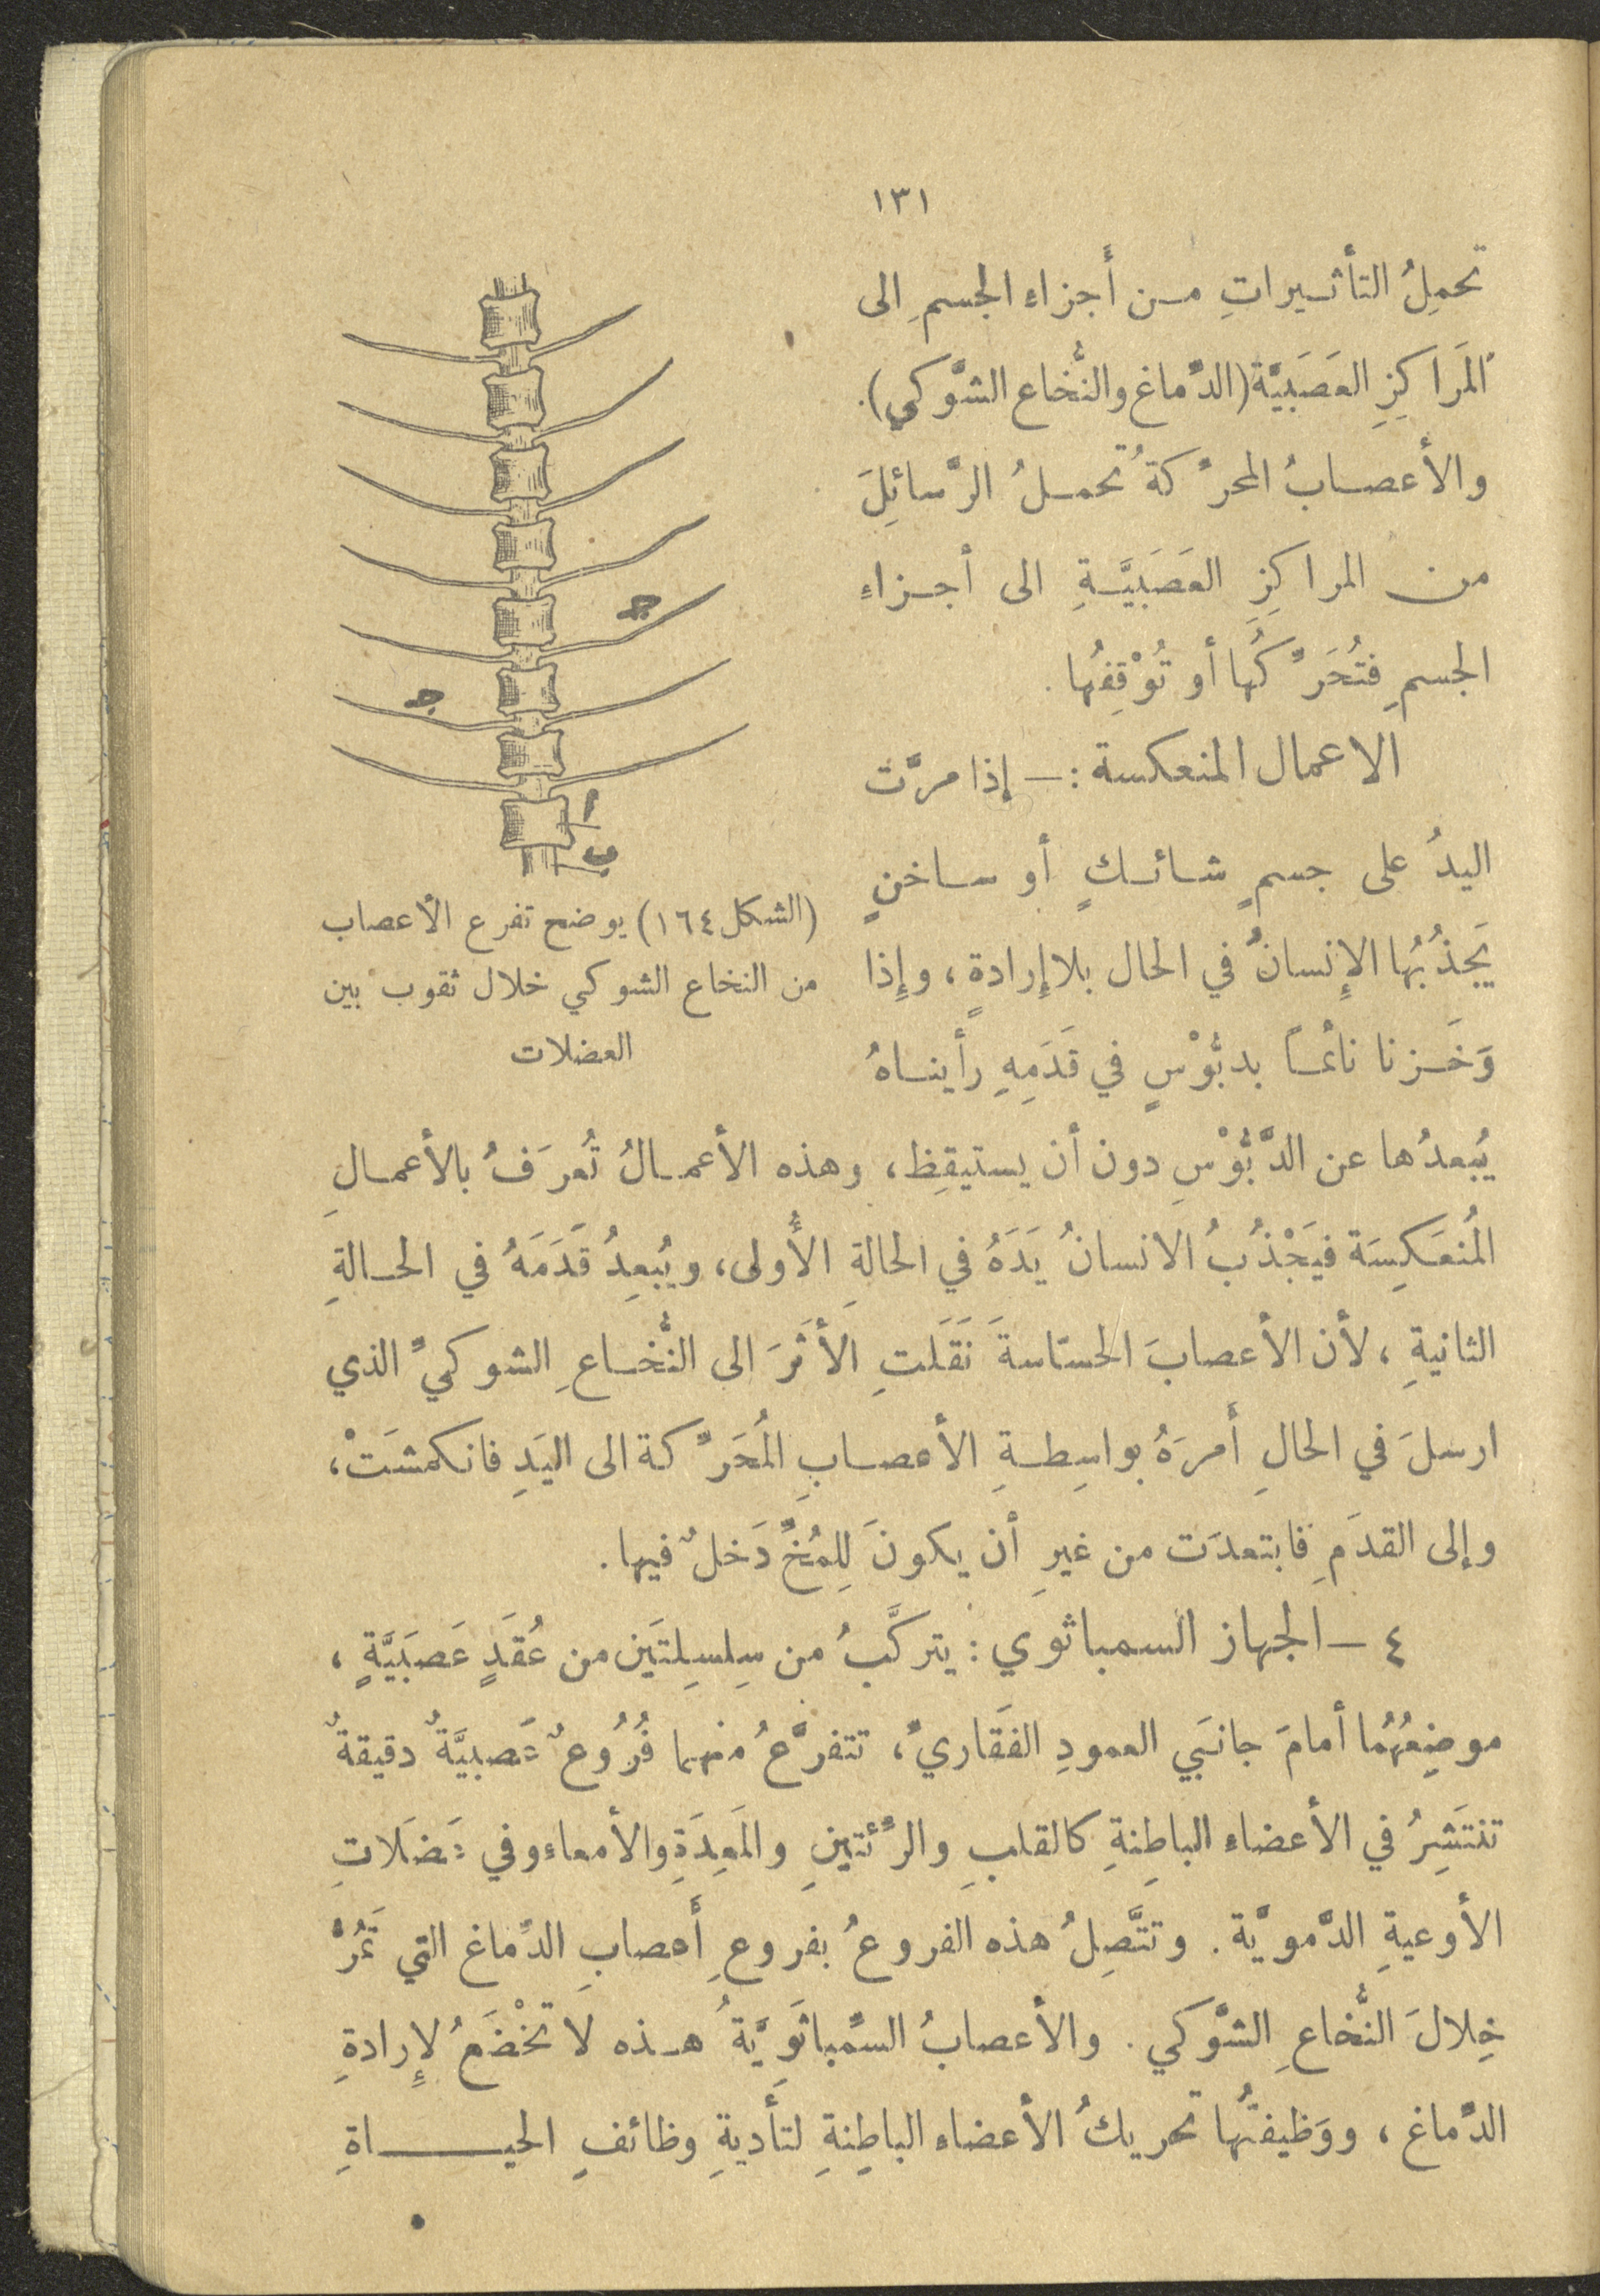 ١٣١
تحمِلُ التأثيراتِ من أَجزاءِ الجسمِ الى
المَراكِزِ العَصَبَيَّة (الدِّماغ والنُّخاع الشَّوكي).
والأعصابُ المحرِّكةُ تحملُ الرَّسائِلَ
من المراكِزِ العَصَبَيَّةِ الى أجزاءِ
الجسمِ فتُحَرِّكُها أو تُوْقِفُها.
الاعمال المنعكسة :— إذا مرَّت
اليدُ على جسمٍ شائكٍ أو ساخنٍ
يَجذُبُها الإِنسانُ في الحال بلا إِرادةٍ، وإِذا
وَخَزنا نائمًا بدبُّوْسٍ في قَدَمِهِ رأيناهُ
ج
ج
ا
ب
(الشكل ١٦٤) يوضح تفرع الأعصاب
من النخاع الشوكي خلال ثقوب بين
العضلات
يُبعدُها عن الدَّبُّوْسِ دون أن يستيقِظ، وهذه الأعمالُ تُعرَفُ بالأعمالِ
المُنعَكِسَة فيَجْذُبُ الانسانُ يَدَهُ في الحالةِ الأُولى، ويُبعِدُ قَدَمَهُ في الحالةِ
الثانيةِ، لأن الأعصابَ الحسّاسةَ نَقَلَتِ الأثَرَ الى النُّخاعِ الشوكيِّ الذي
ارسلَ في الحالِ أَمرَهُ بواسِطةِ الأعصابِ المُحَرِّكة الى اليَدِ فانكمشَتْ،
وإلى القدَمِ فابتعدَت من غيرِ أن يكونَ لِلمُخِّ دَخلٌ فيها.
٤ — الجهاز السمباثوي : يتركَّبُ من سِلسِلِتَين من عُقَدٍ عَصَبَيَّةٍ،
موضِعُهُما أمامَ جانبَي العمودِ الفَقَاريِّ، تتفرَّعُ منهما فُرُوعٌ عَصبيَّةٌ دقيقةٌ
تنتَشِرُ في الأعضاءِ الباطِنةِ كالقلبِ والرِّئتينِ والمَعِدَةِ والأمعاءِ وفي عَضَلاتِ
الأوعيةِ الدَّمويَّة. وتتَّصِلُ هذه الفروعُ بفروعِ أَعصابِ الدِّماغ التي تَمُرُّ
خِلالَ النُّخاعِ الشَّوكي. والأعصابُ السِّمباثَوِيَّةُ هذه لا تخْضَعُ لإِرادةِ
الدِّماغ، ووَظيفتُها تحريكُ الأعضاءِ الباطِنةِ لتأديةِ وظائفِ الحيـــاةِ